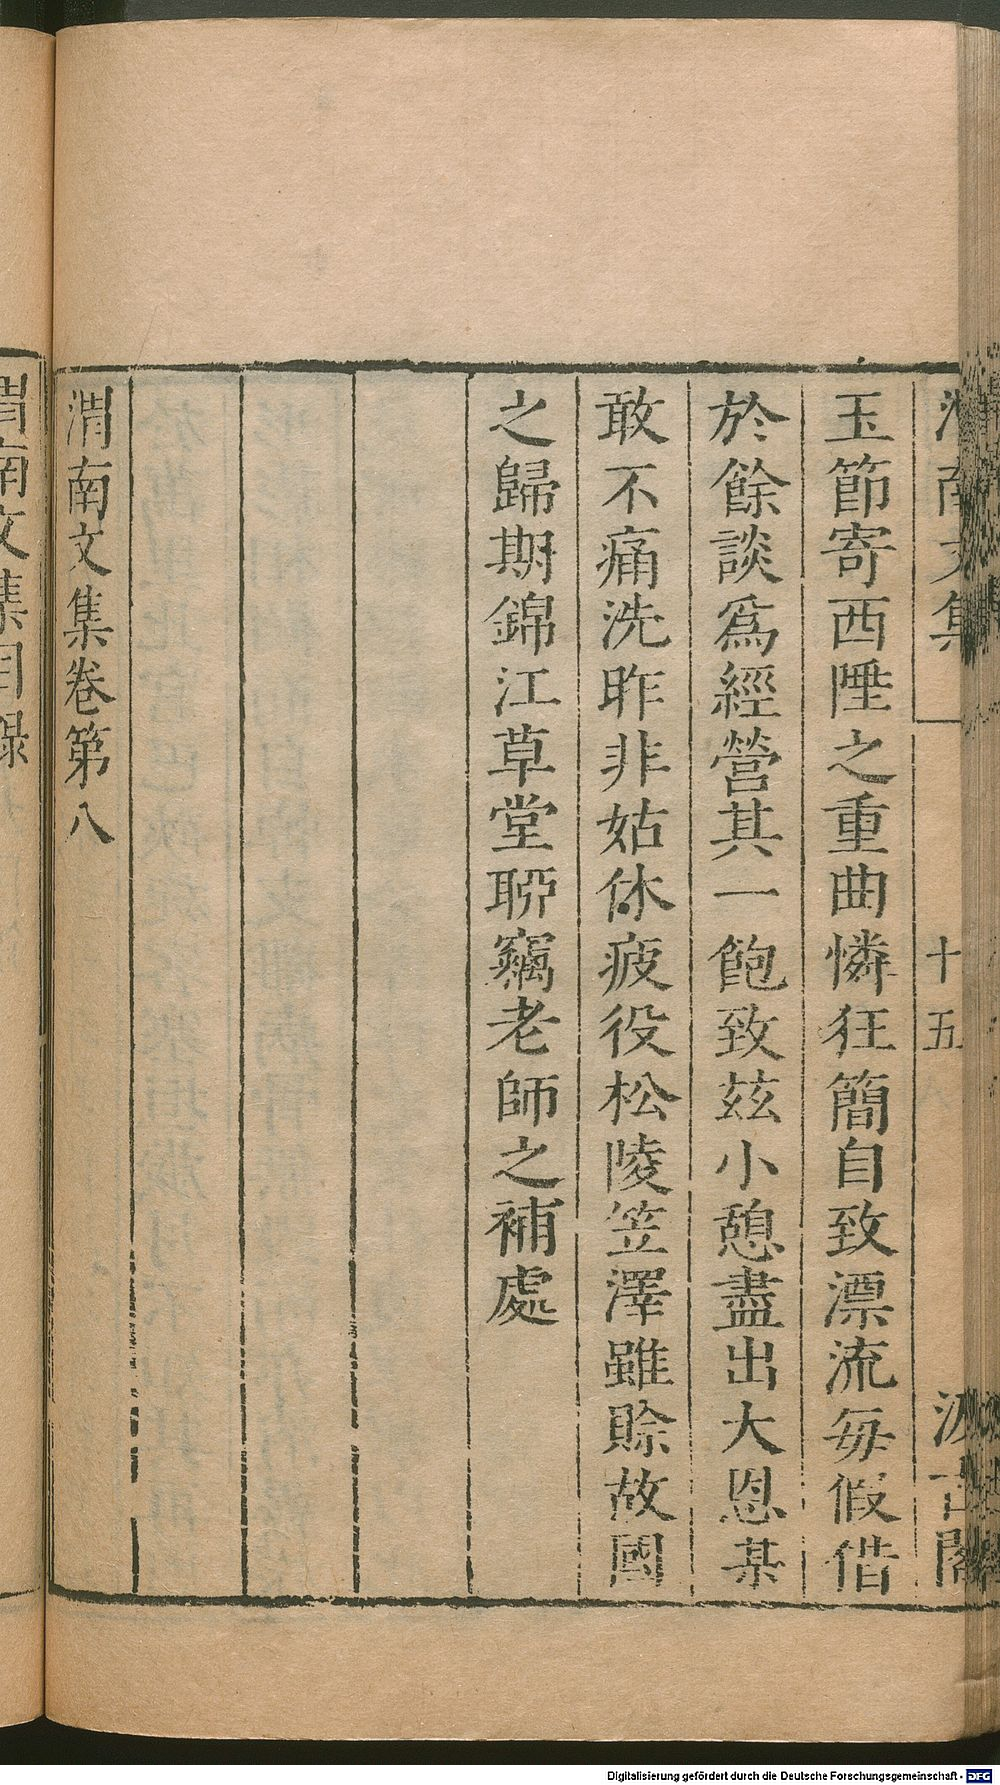 渭南文集
十五
汲古閣
玉節寄西陲之重曲憐狂簡自致漂流每假借
於餘談爲經營其一飽致茲小憩盡出大恩某
敢不痛洗昨非姑休疲役松陵笠澤雖賒故國
之歸期錦江草堂聊竊老師之補處
渭南文集卷第八
渭南文集目錄
Digitalisierung gefördert durch die Deutsche Forschungsgemeinschaft - DFG